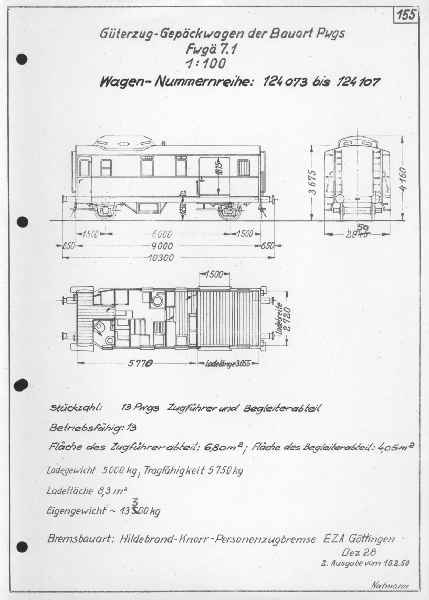 155
Güterzug-Gepäckwagen der Bauart Pwgs
Fwgä 7.1
1:100
Wagen-Nummernreihe: 124 073 bis 124 107
1875
3 675
4 160
1500
6000
1500
650
9000
650
10300
1500
Ladebreite
2 720
5 770
Ladelänge 3.055
Stückzahl: 13 Pwgs Zugführer und Begleiterabteil
Betriebsfähig: 13
Fläche des Zugführerabteil: 6,80 m²; Fläche des Begleiterabteil: 4,05 m²
Ladegewicht 5 000 kg, Tragfähigkeit 5 750 kg
Ladefläche 8,3 m²
Eigengewicht ~ 13 300 kg
Bremsbauart: Hildebrand-Knorr-Personenzugbremse EZA Göttingen
Dez 28
2. Ausgabe vom 10.8.50